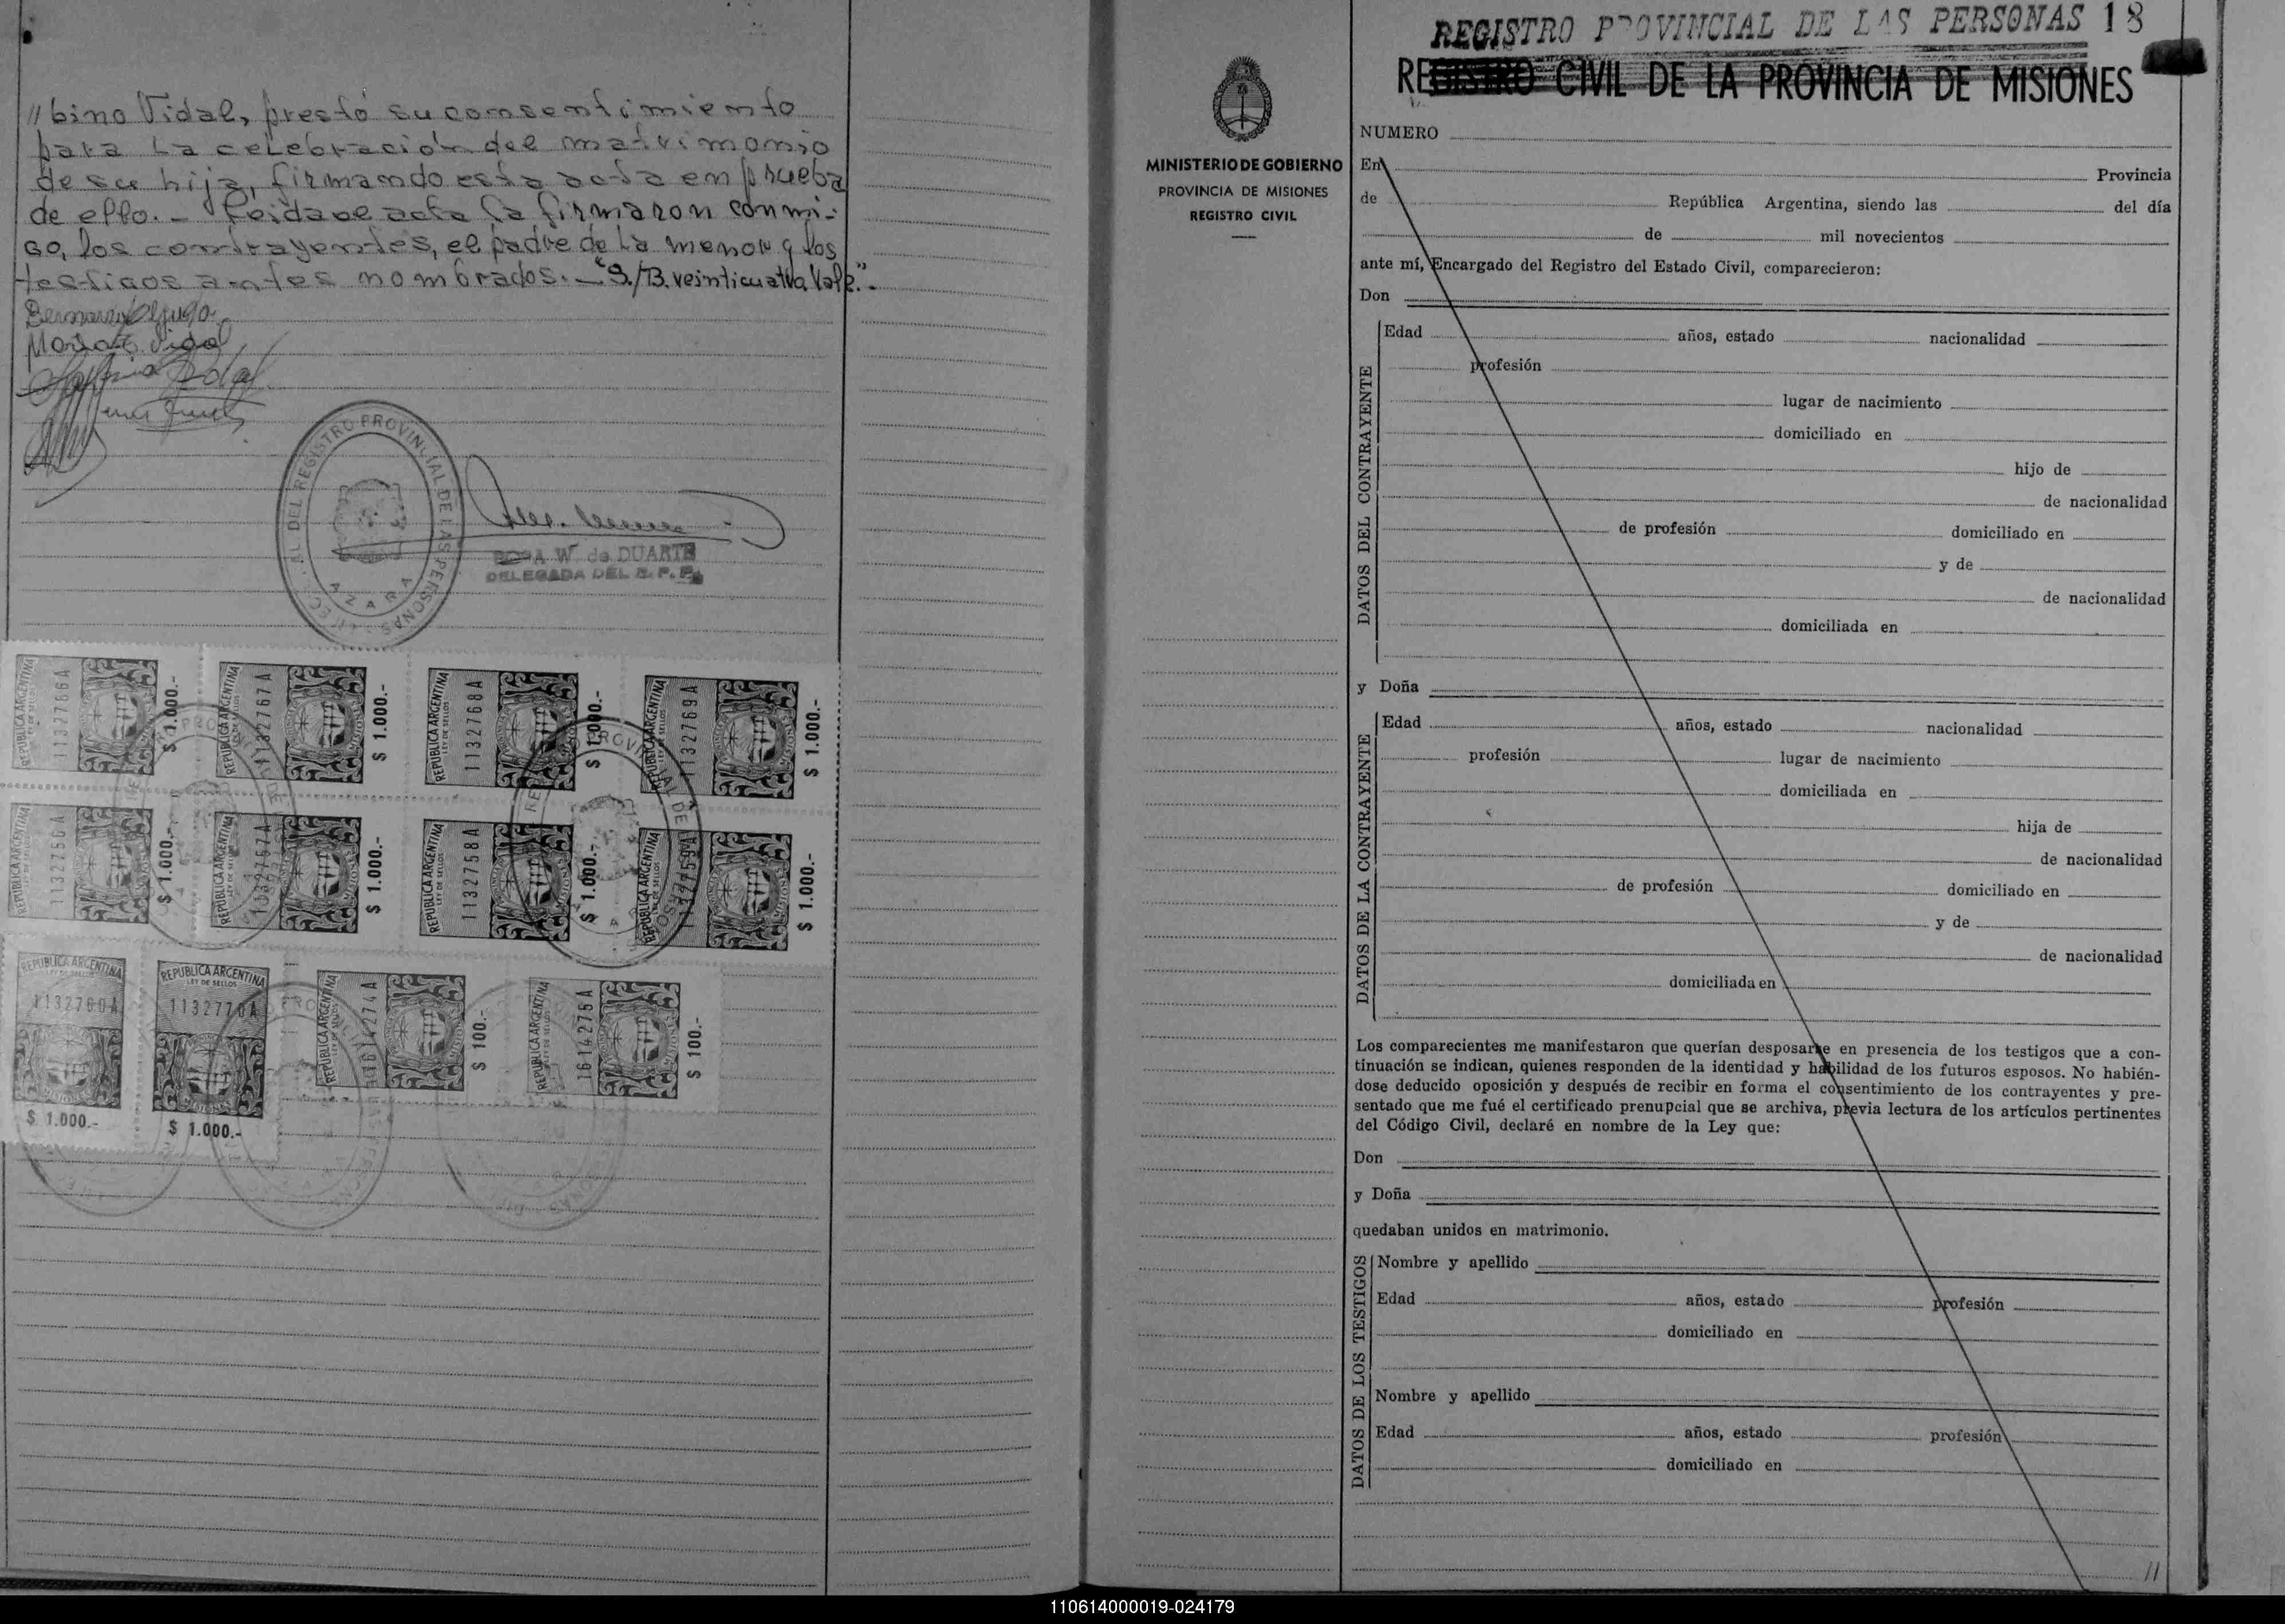 //bino Vidal, prestó su consentimiento
para la celebración del matrimonio
de su hija, firmando esta acta en prueba
de ello.- Leida el acta la firmaron conmi-
go, los contrayentes, el padre de la menor y los
testigos antes nombrados.- "S/B. veinticuatro Vale".-
Vidal
Vidal
REGISTRO PROVINCIAL DE LAS PERSONAS
AZARA
ROSA W. de DUARTE
DELEGADA DEL R. P. P.
REPUBLICA ARGENTINA LEY DE SELLOS 1132766A $ 1.000.-
REPUBLICA ARGENTINA LEY DE SELLOS 1132767A $ 1.000.-
REPUBLICA ARGENTINA LEY DE SELLOS 1132768A $ 1.000.-
REPUBLICA ARGENTINA LEY DE SELLOS 1132769A $ 1.000.-
REPUBLICA ARGENTINA LEY DE SELLOS 1132756A $ 1.000.-
REPUBLICA ARGENTINA LEY DE SELLOS 1132757A $ 1.000.-
REPUBLICA ARGENTINA LEY DE SELLOS 1132758A $ 1.000.-
REPUBLICA ARGENTINA LEY DE SELLOS 1132759A $ 1.000.-
REPUBLICA ARGENTINA LEY DE SELLOS 1132760A $ 1.000.-
REPUBLICA ARGENTINA LEY DE SELLOS 1132770A $ 1.000.-
REPUBLICA ARGENTINA LEY DE SELLOS 1614274A $ 100.-
REPUBLICA ARGENTINA LEY DE SELLOS 1614275A $ 100.-
REGISTRO PROVINCIAL DE LAS PERSONAS 18
REGISTRO CIVIL DE LA PROVINCIA DE MISIONES
MINISTERIO DE GOBIERNO
PROVINCIA DE MISIONES
REGISTRO CIVIL
NUMERO
En Provincia
de República Argentina, siendo las del día
de mil novecientos
ante mí, Encargado del Registro del Estado Civil, comparecieron:
Don
DATOS DEL CONTRAYENTE
Edad años, estado nacionalidad
profesión
lugar de nacimiento
domiciliado en
hijo de
de nacionalidad
de profesión domiciliado en
y de
de nacionalidad
domiciliada en
y Doña
DATOS DE LA CONTRAYENTE
Edad años, estado nacionalidad
profesión lugar de nacimiento
domiciliada en
hija de
de nacionalidad
de profesión domiciliado en
y de
de nacionalidad
domiciliada en
Los comparecientes me manifestaron que querían desposarse en presencia de los testigos que a con-
tinuación se indican, quienes responden de la identidad y habilidad de los futuros esposos. No habién-
dose deducido oposición y después de recibir en forma el consentimiento de los contrayentes y pre-
sentado que me fué el certificado prenupcial que se archiva, previa lectura de los artículos pertinentes
del Código Civil, declaré en nombre de la Ley que:
Don
y Doña
quedaban unidos en matrimonio.
DATOS DE LOS TESTIGOS
Nombre y apellido
Edad años, estado profesión
domiciliado en
Nombre y apellido
Edad años, estado profesión
domiciliado en
//
110614000019-024179